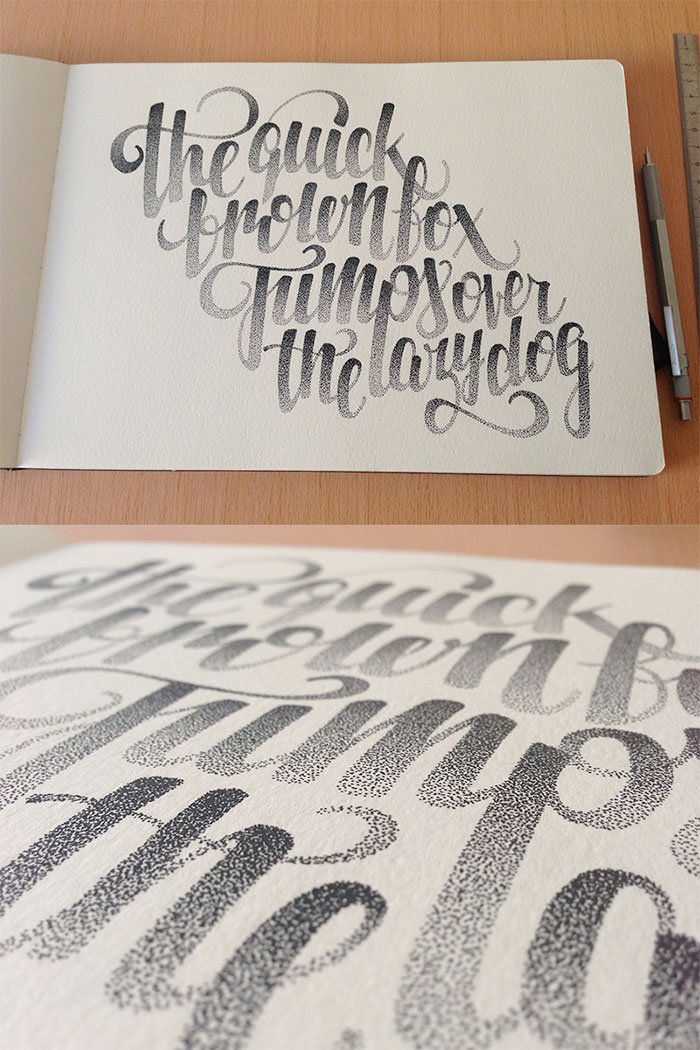 the quick
brown fox
Jumps over
the lazy dog
the quick
brown fo
Jump
the la